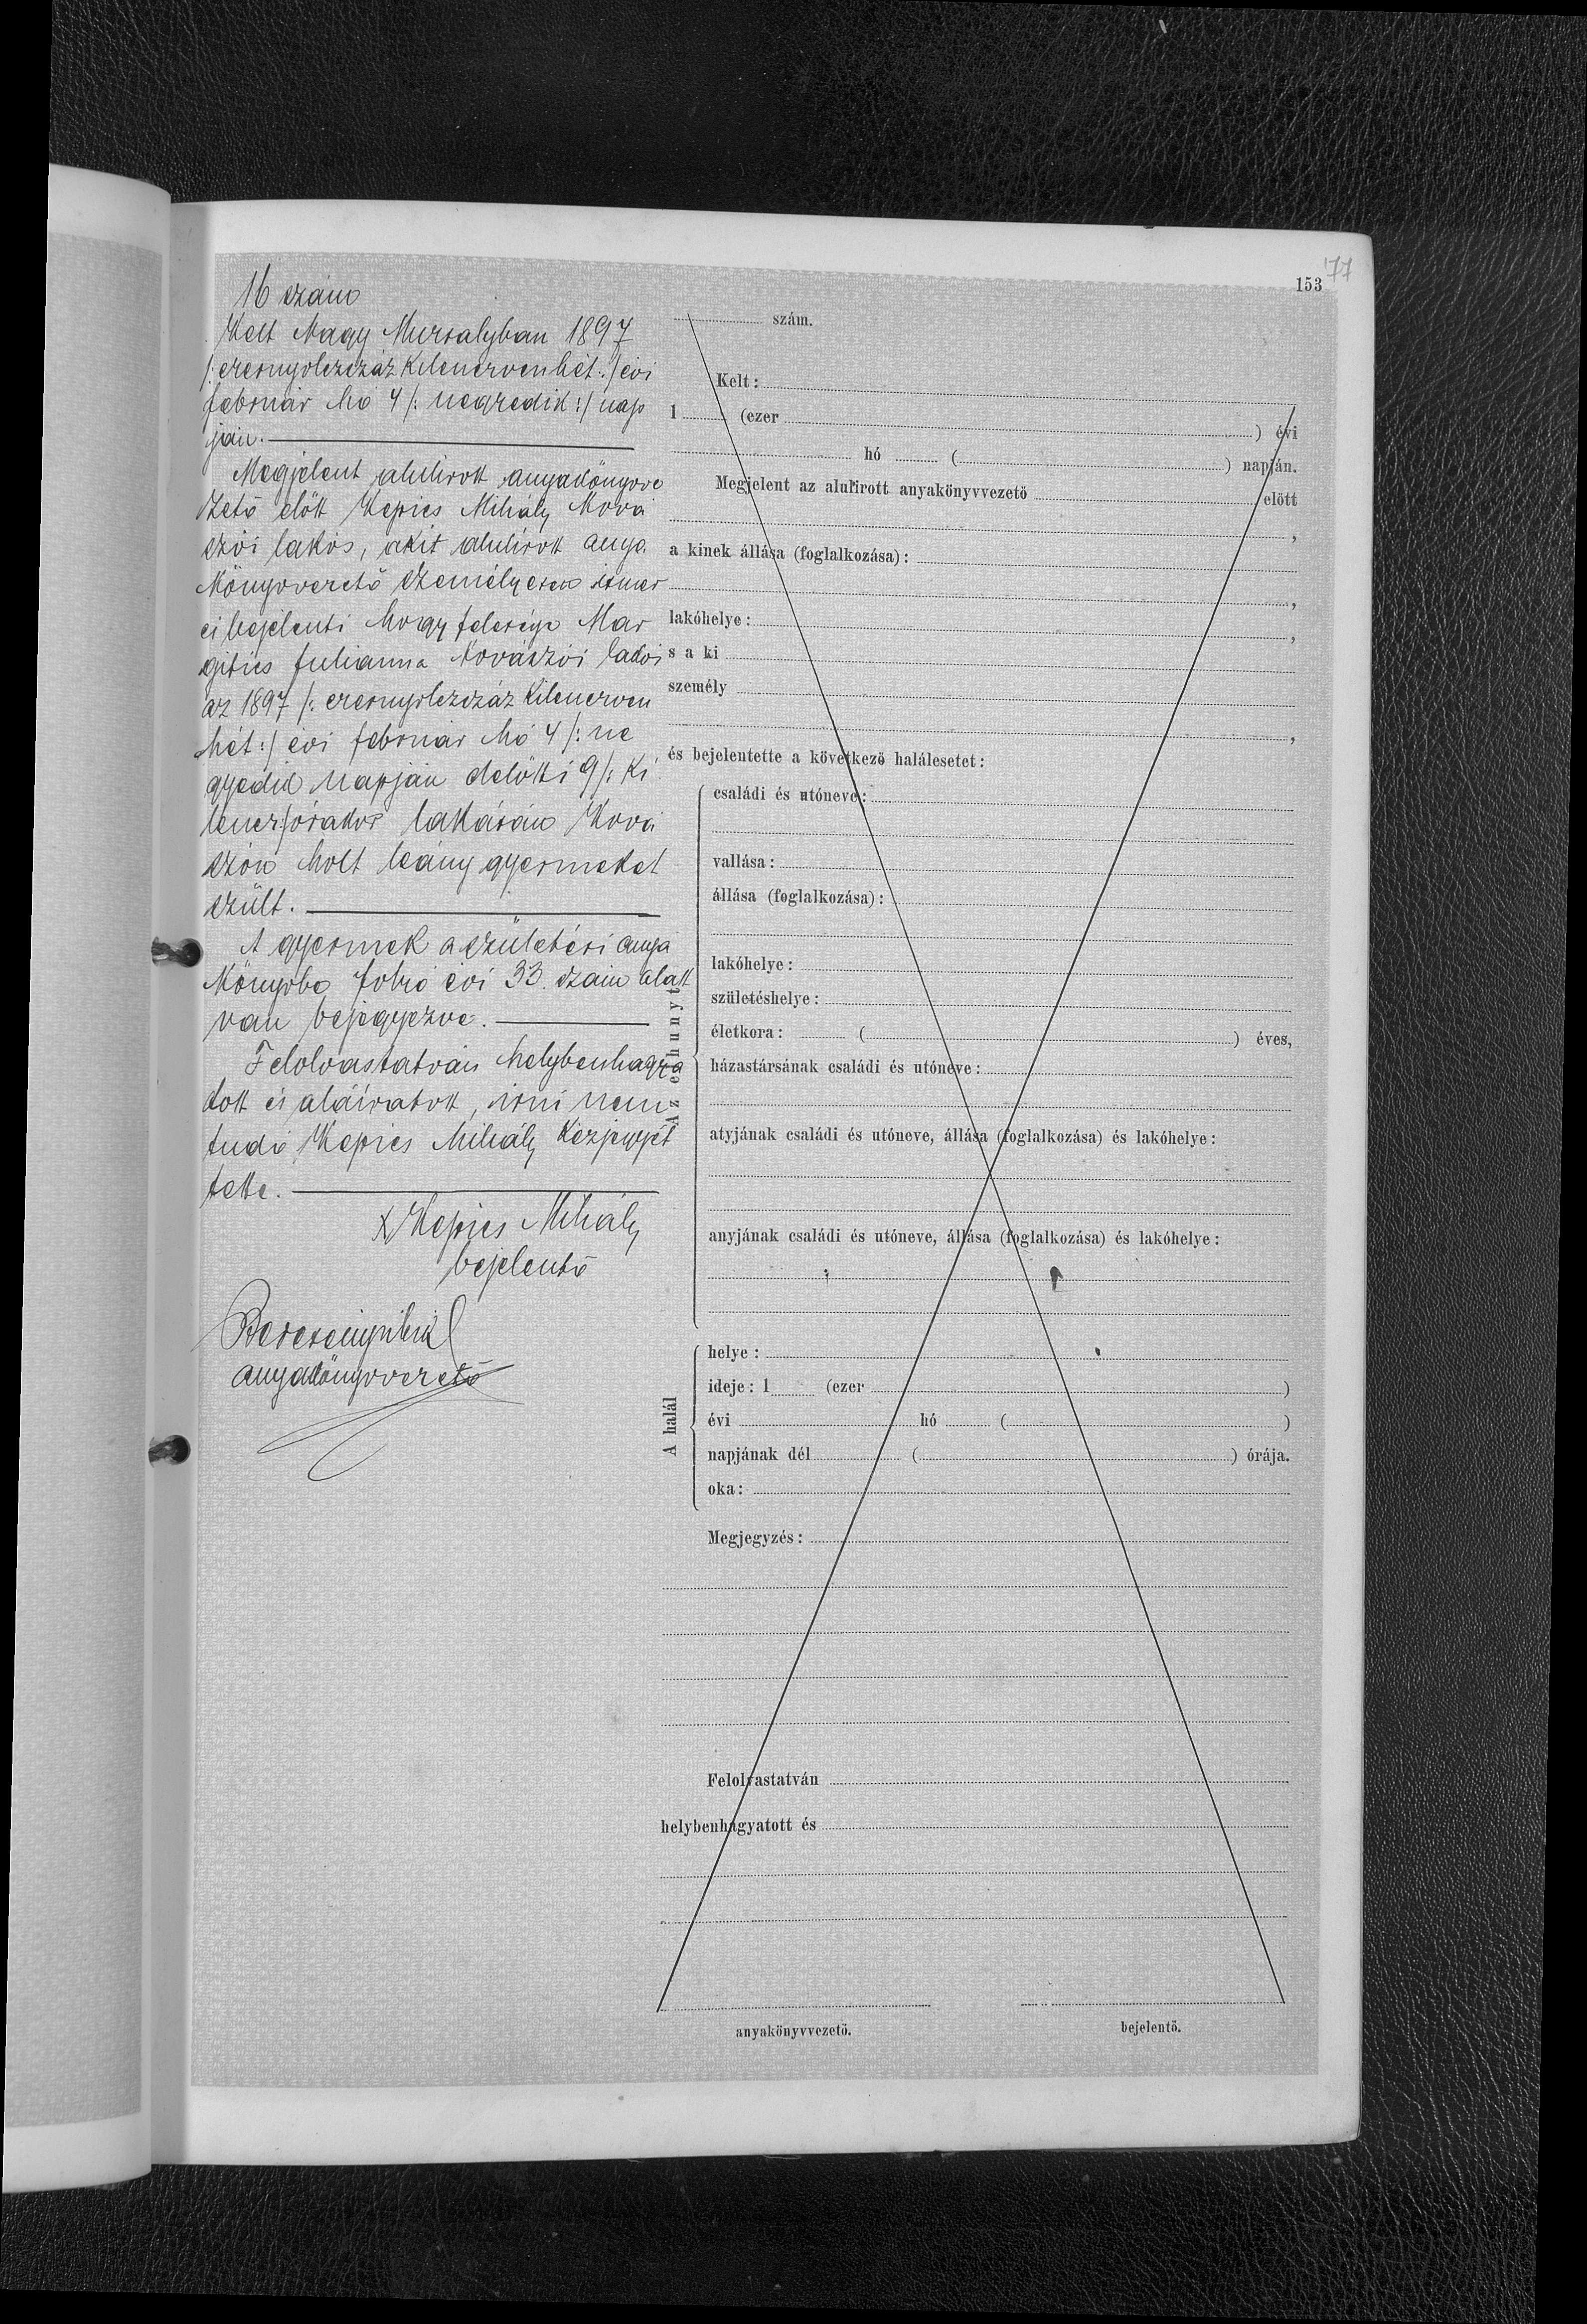 153
77
16 szám
Kelt Nagy Muzsalyban 1897
/: ezernyolczszáz kilenczvenhét :/ évi
február hó 4 /: negyedik :/ nap
ján.
Megjelent alulírott anyakönyvve
zető előtt Kepics Mihály
lakós, akit alulírott anya
könyvvezető személyesen ismer
és bejelenti hogy felesége Mar
gitics Julianna lakós
az 1897 /: ezernyolczszáz kilenczven
hét :/ évi február hó 4 /: ne
gyedik napján délőtti 9 /: ki
lencz :/ órakor lakásán
holt leány gyermeket
szült.
A gyermek a születési anya
könyvbe folyó évi 33. szám alatt
van bejegyezve.
Felolvastatván helybenhagya
tott és aláíratott, írni nem
tudó Kepics Mihály kézjegyét
tette.
x Kepics Mihály
bejelentő
anyakönyvvezető
szám.
Kelt:
1 (ezer ) évi
hó ( ) napján.
Megjelent az alulirott anyakönyvvezetö elött
,
a kinek állása (foglalkozása):
,
lakóhelye: ,
s a ki
személy
,
és bejelentette a következö halálesetet:
Az elhunyt
családi és utóneve:
vallása:
állása (foglalkozása):
lakóhelye:
születéshelye:
életkora: ( ) éves,
házastársának családi és utóneve:
atyjának családi és utóneve, állása (foglalkozása) és lakóhelye:
anyjának családi és utóneve, állása (foglalkozása) és lakóhelye:
A halál
helye:
ideje: 1 (ezer )
évi hó ( )
napjának dél ( ) órája.
oka:
Megjegyzés:
Felolvastatván
helybenhagyatott és
anyakönyvvezetö. bejelentö.